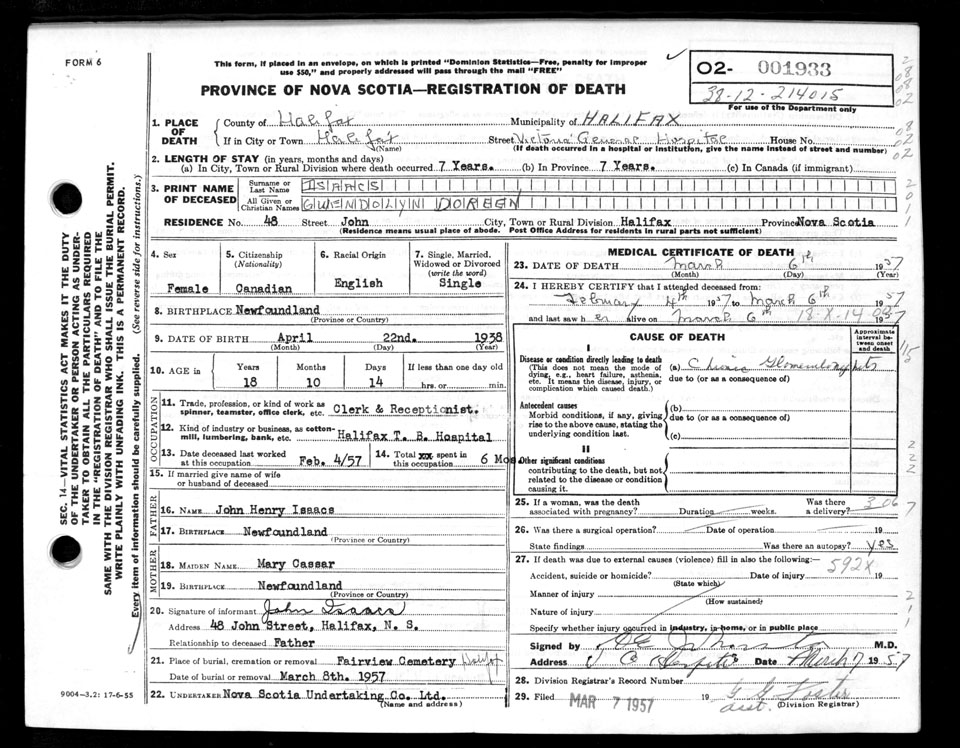 FORM 6
This form, if placed in an envelope, on which is printed "Dominion Statistics—Free, penalty for improper
use $50," and properly addressed will pass through the mail "FREE"
PROVINCE OF NOVA SCOTIA—REGISTRATION OF DEATH
02- 001933
38-12-214015
For use of the Department only
1. PLACE OF DEATH
County of Halifax Municipality of HALIFAX
If in City or Town Halifax (Name) Street Victoria General Hospital House No.
(If death occurred in a hospital or institution, give the name instead of street and number)
2. LENGTH OF STAY (in years, months and days)
(a) In City, Town or Rural Division where death occurred 7 Years. (b) In Province 7 Years. (c) In Canada (if immigrant)
3. PRINT NAME OF DECEASED
Surname or Last Name ISAACS
All Given or Christian Names GWENDOLYN DOREEN
RESIDENCE No. 48 Street John City, Town or Rural Division Halifax Province Nova Scotia
(Residence means usual place of abode. Post Office Address for residents in rural parts not sufficient)
4. Sex
Female
5. Citizenship (Nationality)
Canadian
6. Racial Origin
English
7. Single, Married, Widowed or Divorced (write the word)
Single
8. BIRTHPLACE Newfoundland
(Province or Country)
9. DATE OF BIRTH April 22nd. 1938
(Month) (Day) (Year)
10. AGE in Years Months Days If less than one day old
18 10 14 hrs. or min.
OCCUPATION
11. Trade, profession, or kind of work as
spinner, teamster, office clerk, etc. Clerk & Receptionist.
12. Kind of industry or business, as cotton-
mill, lumbering, bank, etc. Halifax T. B. Hospital
13. Date deceased last worked
at this occupation Feb. 4/57
14. Total xxx spent in
this occupation 6 Mos
15. If married give name of wife
or husband of deceased
FATHER
16. NAME John Henry Isaacs
17. BIRTHPLACE Newfoundland
(Province or Country)
MOTHER
18. MAIDEN NAME Mary Cassar
19. BIRTHPLACE Newfoundland
(Province or Country)
20. Signature of informant John Isaacs
Address 48 John Street, Halifax, N. S.
Relationship to deceased Father
21. Place of burial, cremation or removal Fairview Cemetery Halifax
Date of burial or removal March 8th. 1957
22. UNDERTAKER Nova Scotia Undertaking Co. Ltd.
(Name and address)
MEDICAL CERTIFICATE OF DEATH
23. DATE OF DEATH March 6th 1957
(Month) (Day) (Year)
24. I HEREBY CERTIFY that I attended deceased from:
February 4th 1957 to March 6th 1957
and last saw her alive on March 6th 1957
18-X-14 08
CAUSE OF DEATH
Approximate interval between onset and death
I
Disease or condition directly leading to death
(This does not mean the mode of dying, e.g., heart failure, asthenia, etc. It means the disease, injury, or complication which caused death.)
(a) Chronic Glomerulonephritis
due to (or as a consequence of)
Antecedent causes
Morbid conditions, if any, giving rise to the above cause, stating the underlying condition last.
(b)
due to (or as a consequence of)
(c)
II
Other significant conditions
contributing to the death, but not related to the disease or condition causing it.
25. If a woman, was the death
associated with pregnancy? Duration weeks. Was there a delivery?
306
26. Was there a surgical operation? Date of operation 19
State findings Was there an autopsy? yes
27. If death was due to external causes (violence) fill in also the following:—
592X
Accident, suicide or homicide? Date of injury 19
(State which)
Manner of injury
(How sustained)
Nature of injury
Specify whether injury occurred in industry, in home, or in public place
Signed by M.D.
Address Date March 7 1957
28. Division Registrar's Record Number
29. Filed MAR 7 1957 19 G G Foster
asst. (Division Registrar)
SEC. 14—VITAL STATISTICS ACT MAKES IT THE DUTY
OF THE UNDERTAKER OR PERSON ACTING AS UNDER-
TAKER TO OBTAIN ALL THE PARTICULARS REQUIRED
IN THE "REGISTRATION OF DEATH" AND TO FILE THE
SAME WITH THE DIVISION REGISTRAR WHO SHALL ISSUE THE BURIAL PERMIT.
WRITE PLAINLY WITH UNFADING INK. THIS IS A PERMANENT RECORD.
Every item of information should be carefully supplied. (See reverse side for instructions.)
9004—3.2: 17-6-55